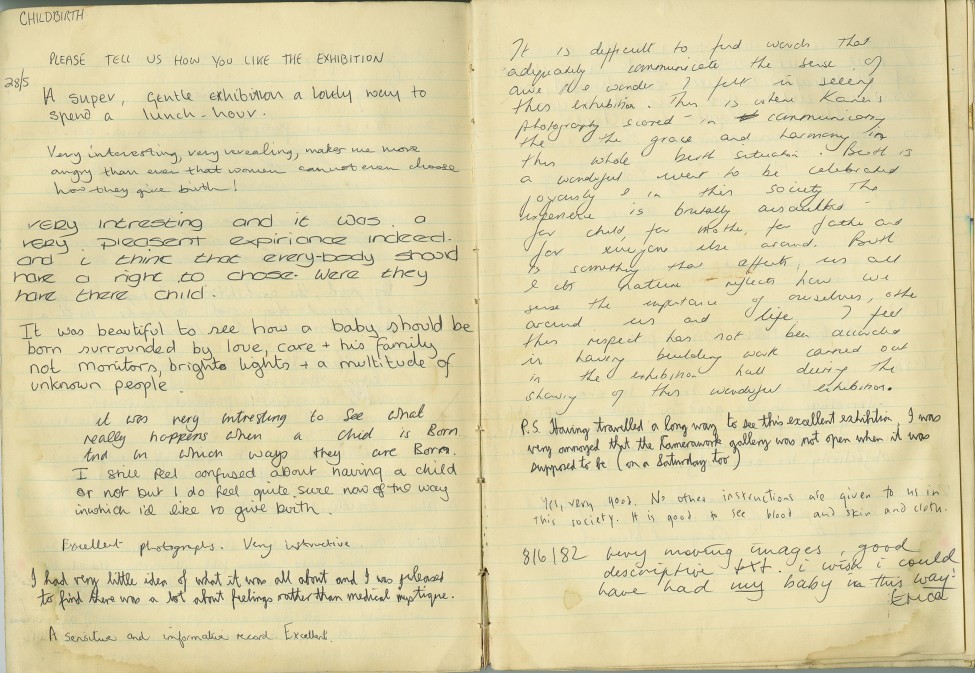 CHILDBIRTH
PLEASE TELL US HOW YOU LIKE THE EXHIBITION
28/5
A super, gentle exhibition a lovely way to
spend a lunch-hour.
Very interesting, very revealing, makes me more
angry than ever that women cannot even choose
how they give birth!
very intresting and it was a
very pleasent expiriance indeed.
and i think that every-body should
have a right to chose. Were they
have there child.
It was beautiful to see how a baby should be
born surrounded by love, care + his family
not monitors, bright lights + a multitude of
unknown people.
it was very intresting to see what
really happens when a chid is Born
And in which ways they are Born.
I still feel confused about having a child
or not but I do feel quite sure now of the way
in which i'd like to give birth.
Excellent photographs. Very istructive
I had very little idea of what it was all about and I was pleased
to find there was a lot about feelings rather than medical mystique.
A sensitive and informative record. Excellent.
It is difficult to find words that
adequately communicate the sense of
awe & wonder I felt in seeing
this exhibition. This is where
photography scored - in communicating
the the grace and harmony in
this whole birth situation. Birth is
a wonderful event to be celebrated
joyously & in this society the
experience is brutally assaulted -
for child, for mother, for father and
for else around. Birth
is something that affects us all
& its nature reflects how we
sense the importance of ourselves, others
around us and life. I feel
this respect has not been accorded
in having building work carried out
in the exhibition hall during the
showing of this wonderful exhibition.
P.S. Having travelled a long way to see this excellent exhibition, I was
very annoyed that the Camerawork gallery was not open when it was
supposed to be (on a Saturday too)
Yes, very good. No other instructions are given to us in
this society. It is good to see blood and skin and cloth.
8/6/82 very moving images, good
descriptive txt. i wish i could
have had my baby in this way!
Erica